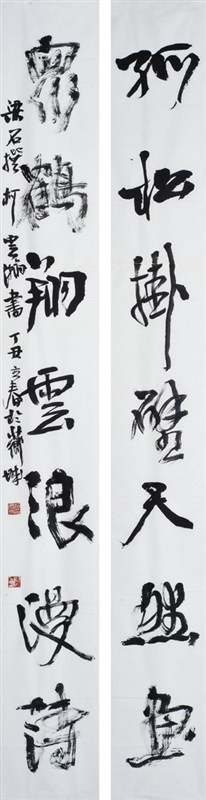 孤松掛壁天然畫
眾鶴翔雲浪漫詩
梁石撰 柯雲瀚書 丁丑立春於薌城